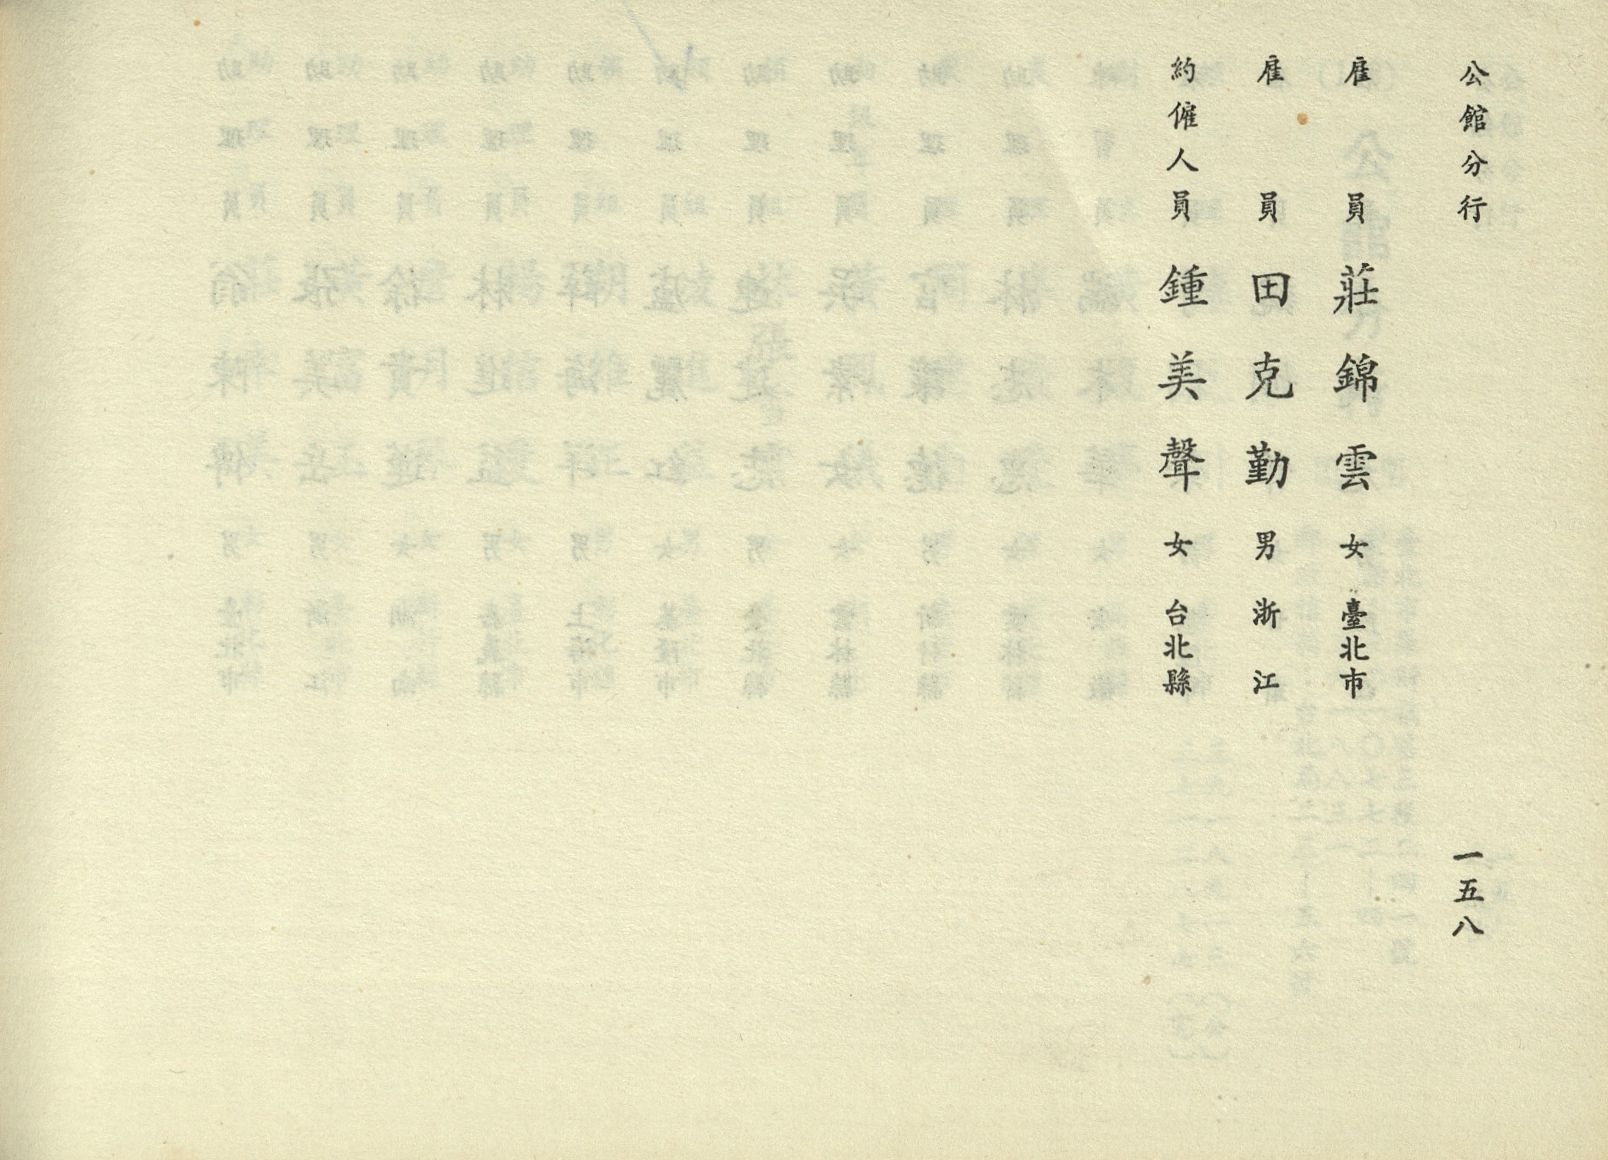 公館分行
一五八
雇員 莊錦雲 女 臺北市
雇員 田克勤 男 浙江
約僱人員 鍾美聲 女 台北縣